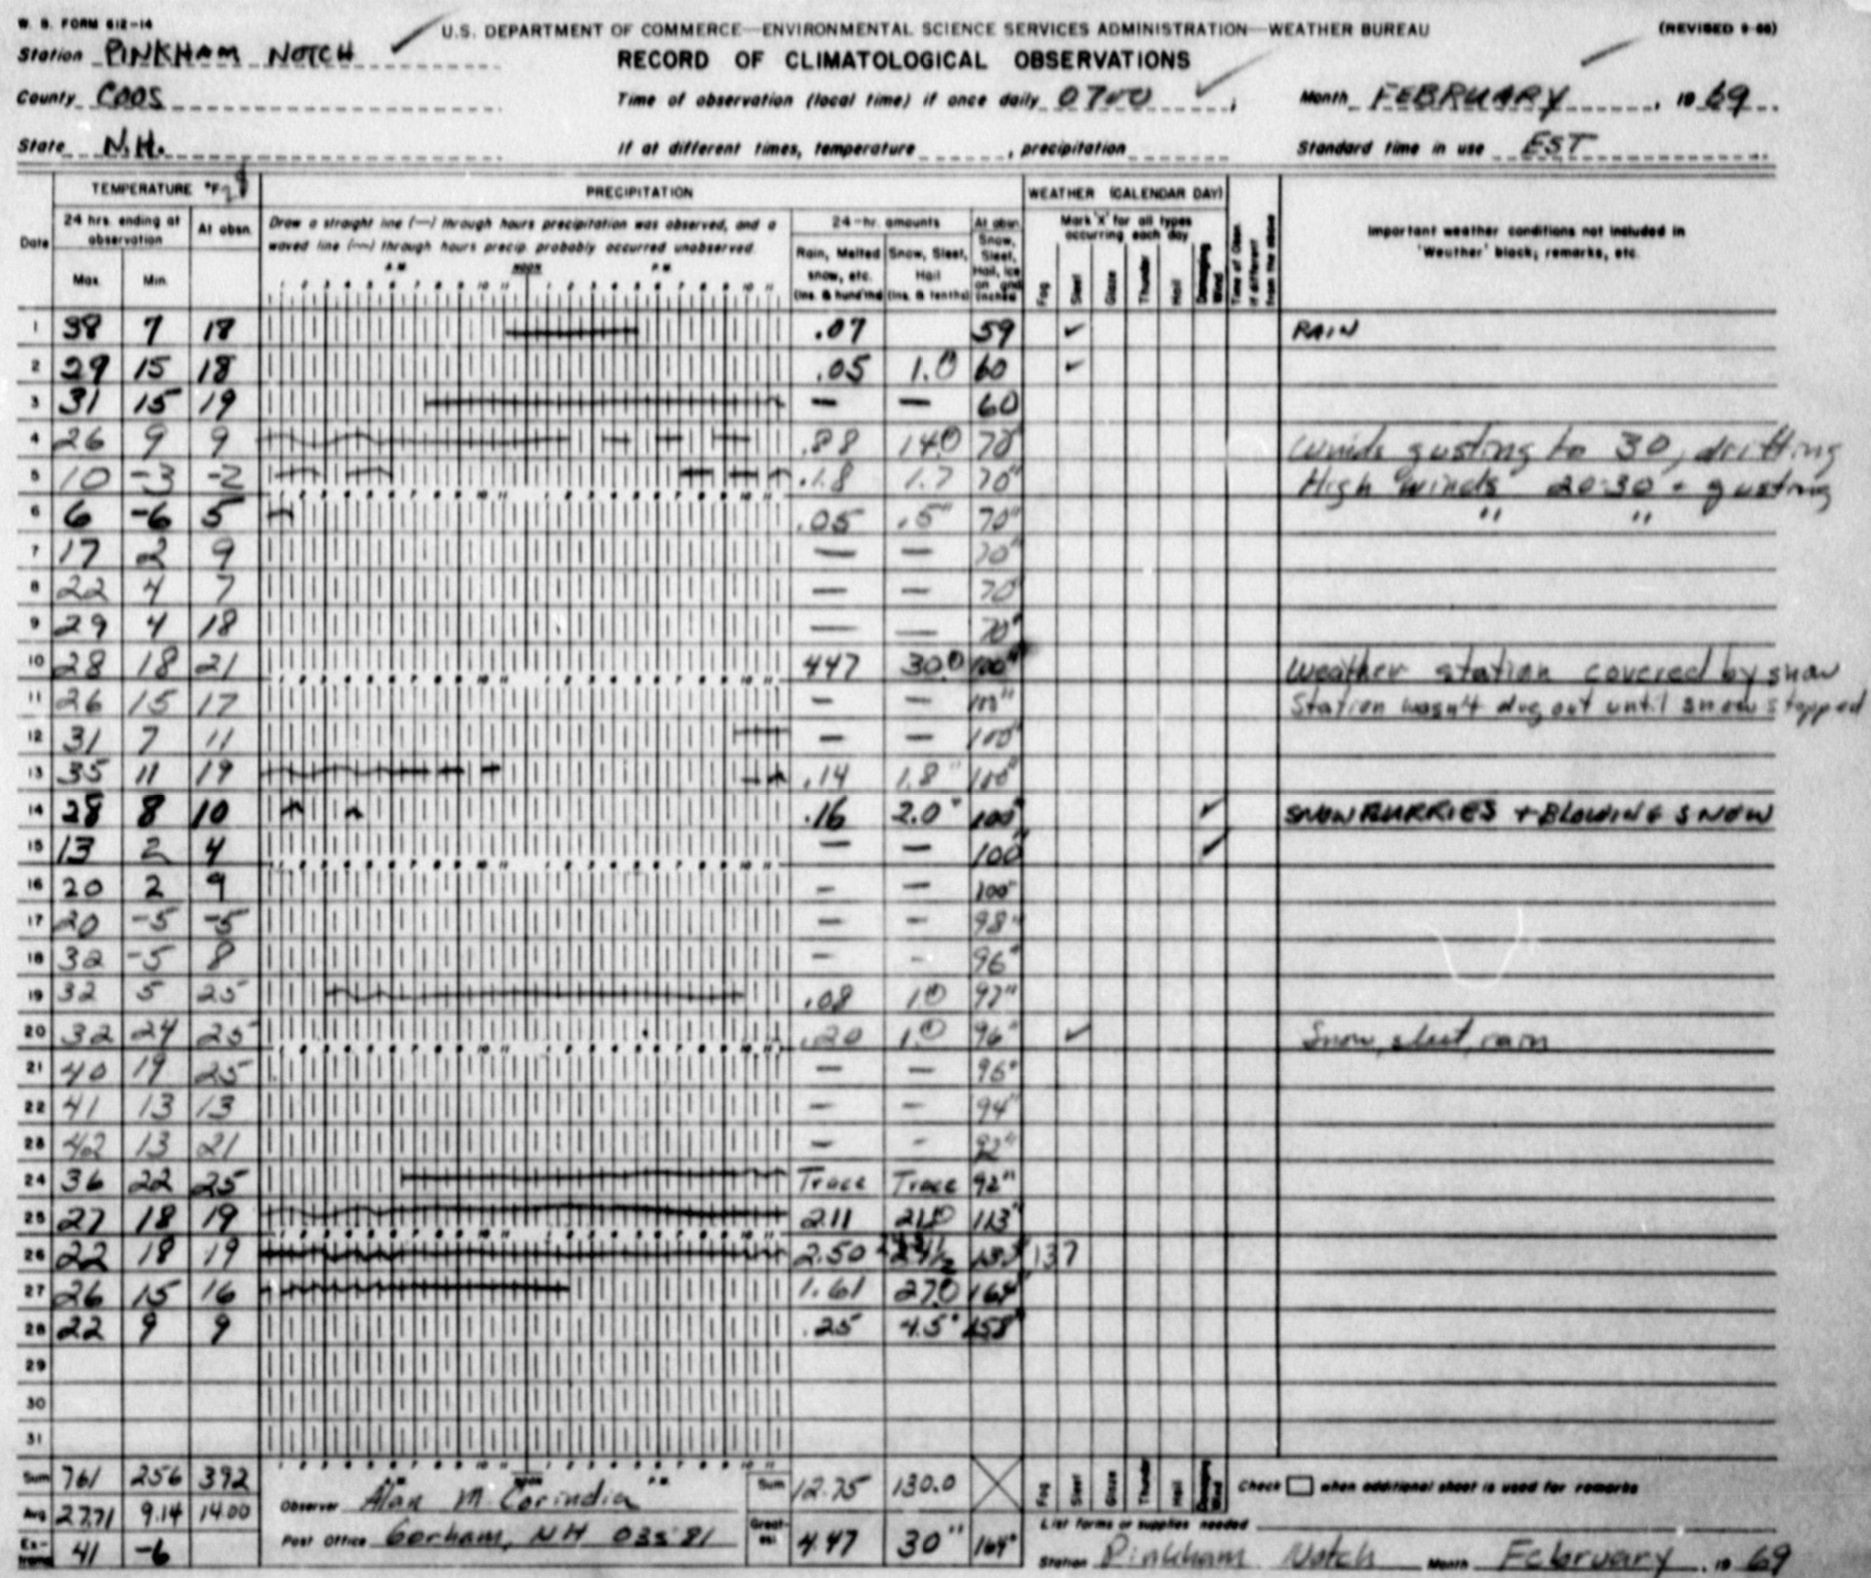 W. B. FORM 612-14
U.S. DEPARTMENT OF COMMERCE—ENVIRONMENTAL SCIENCE SERVICES ADMINISTRATION—WEATHER BUREAU
Station PINKHAM NOTCH
RECORD OF CLIMATOLOGICAL OBSERVATIONS
County COOS
Time of observation (local time) if once daily 0700,
Month FEBRUARY, 19 69
State N.H.
If at different times, temperature , precipitation
Standard time in use EST
TEMPERATURE °F
PRECIPITATION
WEATHER (CALENDAR DAY)
Date
24 hrs. ending at observation
At obsn.
Draw a straight line (—) through hours precipitation was observed, and a
waved line (~~) through hours precip. probably occurred unobserved.
24-hr. amounts
At obsn.
Mark 'X' for all types occurring each day
Important weather conditions not included in
'Weather' block; remarks, etc.
Max. Min.
A.M. NOON P.M.
Rain, Melted snow, etc. (Ins. & hundths)
Snow, Sleet, Hail (Ins. & tenths)
Snow, Sleet, Hail, Ice on gnd inches
Fog Sleet Glaze Thunder Hail Damaging Wind
Time of Obsn. if different from the above
1 38 7 18 .07 59 ✓ RAIN
2 29 15 18 .05 1.0 60 ✓
3 31 15 19 — — 60
4 26 9 9 .88 14.0 70" Winds gusting to 30, drifting
5 10 -3 -2 .18 1.7 70" High winds 20-30 - gusting
6 6 -6 5 .05 .5" 70" " "
7 17 2 9 — — 70"
8 22 4 7 — — 70"
9 29 4 18 — — 70"
10 28 18 21 447 30.0 100" Weather station covered by snow
11 26 15 17 — — 100" Station wasn't dug out until snow stopped
12 31 7 11 — — 100"
13 35 11 19 .14 1.8" 100"
14 28 8 10 .16 2.0" 100" ✓ SNOW FLURRIES + BLOWING SNOW
15 13 2 4 — — 100" ✓
16 20 2 9 — — 100"
17 20 -5 -5 — — 98"
18 32 -5 8 — - 96"
19 32 5 25 .08 1.0 97"
20 32 24 25 .20 1.0 96" ✓ Snow, sleet, rain
21 40 19 25 — — 96"
22 41 13 13 — — 94"
23 42 13 21 — - 92"
24 36 22 25 Trace Trace 92"
25 27 18 19 2.11 21.0 113"
26 22 18 19 2.50 137
27 26 15 16 1.61 27.0 164"
28 22 9 9 .25 4.5" 158"
29
30
31
Sum 761 256 392 Sum 12.75 130.0
Observer Alan M. Corindia
Fog Sleet Glaze Thunder Hail Damaging Wind
Check when additional sheet is used for remarks
Avg 27.71 9.14 14.00
List forms or supplies needed
Post Office Gorham, NH 03581
Extreme 41 -6 Greatest 4.47 30" 164"
Station Pinkham Notch Month February, 19 69